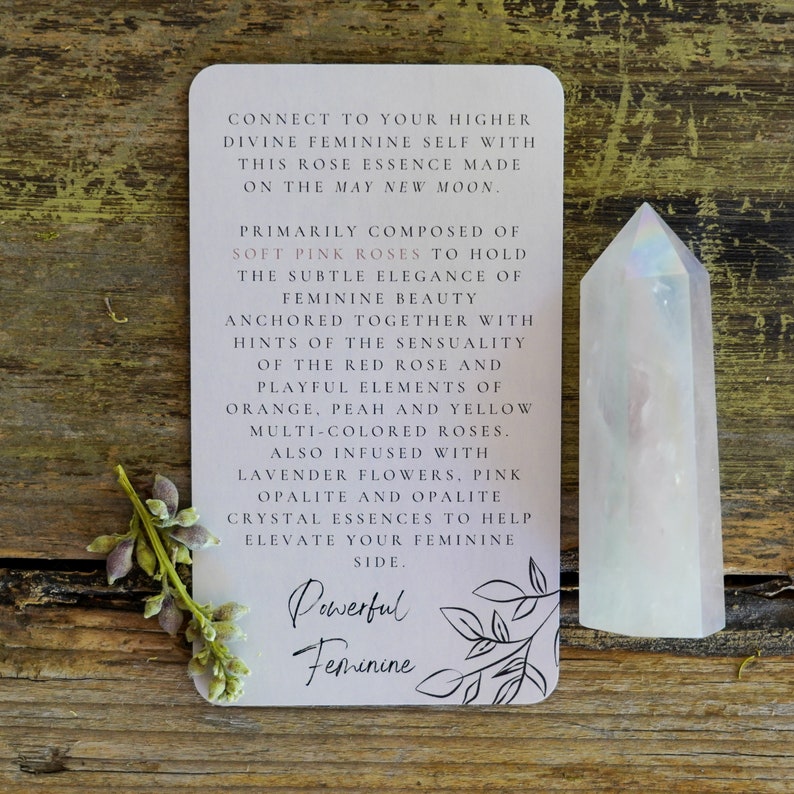 CONNECT TO YOUR HIGHER
DIVINE FEMININE SELF WITH
THIS ROSE ESSENCE MADE
ON THE MAY NEW MOON.
PRIMARILY COMPOSED OF
SOFT PINK ROSES TO HOLD
THE SUBTLE ELEGANCE OF
FEMININE BEAUTY
ANCHORED TOGETHER WITH
HINTS OF THE SENSUALITY
OF THE RED ROSE AND
PLAYFUL ELEMENTS OF
ORANGE, PEAH AND YELLOW
MULTI-COLORED ROSES.
ALSO INFUSED WITH
LAVENDER FLOWERS, PINK
OPALITE AND OPALITE
CRYSTAL ESSENCES TO HELP
ELEVATE YOUR FEMININE
SIDE.
Powerful
Feminine